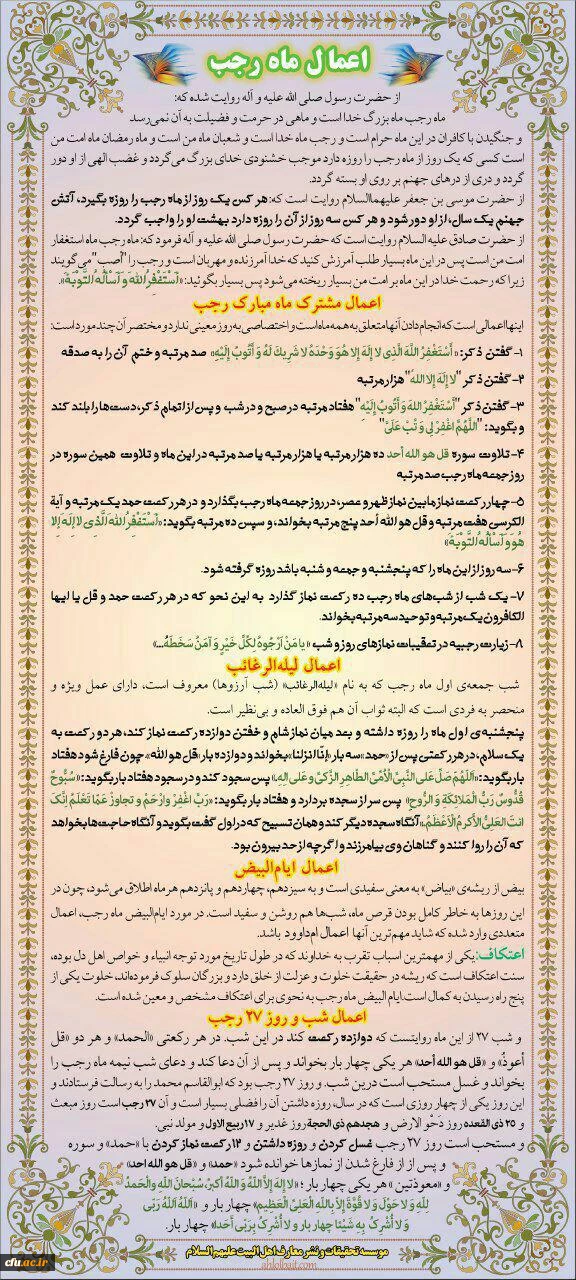 اعمال ماه رجب
از حضرت رسول صلی الله علیه و آله روایت شده که:
ماه رجب ماه بزرگ خدا است و ماهی در حرمت و فضیلت به آن نمی‌رسد
و جنگیدن با کافران در این ماه حرام است و رجب ماه خدا است و شعبان ماه من است و ماه رمضان ماه امت من
است کسی که یک روز از ماه رجب را روزه دارد موجب خشنودی خدای بزرگ می‌گردد و غضب الهی از او دور
گردد و دری از درهای جهنم بر روی او بسته گردد.
از حضرت موسی بن جعفر علیهماالسلام روایت است که: هر کس یک روز از ماه رجب را روزه بگیرد، آتش
جهنم یک سال، از او دور شود و هر کس سه روز از آن را روزه دارد بهشت او را واجب گردد.
از حضرت صادق علیه السلام روایت است که حضرت رسول صلی الله علیه و آله فرمود که: ماه رجب ماه استغفار
امت من است پس در این ماه بسیار طلب آمرزش کنید که خدا آمرزنده و مهربان است و رجب را "أصب" می‌گویند
زیرا که رحمت خدا در این ماه بر امت من بسیار ریخته می‌شود پس بسیار بگوئید: «أَسْتَغْفِرُ اللهَ وَ أَسْأَلُهُ التَّوْبَةَ».
اعمال مشترک ماه مبارک رجب
اینها اعمالی است که انجام دادن آنها متعلق به همه ماه است و اختصاصی به روز معینی ندارد و مختصر آن چند مورد است:
۱- گفتن ذکر: « أَسْتَغْفِرُ اللهَ الَّذِی لا إِلهَ إِلا هُوَ وَحْدَهُ لا شَرِیکَ لَهُ وَ أَتُوبُ إِلَیْهِ» صد مرتبه و ختم آن را به صدقه
۲- گفتن ذکر "لا إِلهَ إِلا اللهُ" هزار مرتبه
۳- گفتن ذکر "أَسْتَغْفِرُ اللهَ وَ أَتُوبُ إِلَیْهِ" هفتاد مرتبه در صبح و در شب و پس از اتمام ذکر، دست‌ها را بلند کند
و بگوید: "اللَّهُمَّ اغْفِرْ لِی وَ تُبْ عَلَیَّ"
۴- تلاوت سوره قل هو الله أحد ده هزار مرتبه یا هزار مرتبه یا صد مرتبه در این ماه و تلاوت همین سوره در
روز جمعه ماه رجب صد مرتبه
۵- چهار رکعت نماز مابین نماز ظهر و عصر، در روز جمعه ماه رجب بگذارد و در هر رکعت حمد یک مرتبه و آیة
الکرسی هفت مرتبه و قل هو الله أحد پنج مرتبه بخواند، و سپس ده مرتبه بگوید: «أَسْتَغْفِرُ اللهَ الَّذِی لا إِلهَ إِلا
هُوَ وَ أَسْأَلُهُ التَّوْبَةَ»
۶- سه روز از این ماه را که پنجشنبه و جمعه و شنبه باشد روزه گرفته شود.
۷- یک شب از شب‌های ماه رجب ده رکعت نماز گذارد به این نحو که در هر رکعت حمد و قل یا ایها
الکافرون یک مرتبه و توحید سه مرتبه بخواند.
۸- زیارت رجبیه در تعقیبات نمازهای روز و شب « یا مَنْ أَرْجُوهُ لِکُلِّ خَیْرٍ وَ آمَنُ سَخَطَهُ...»
اعمال لیله‌الرغائب
شب جمعه‌ی اول ماه رجب که به نام «لیله‌الرغائب» (شب آرزوها) معروف است، دارای عمل ویژه و
منحصر به فردی است که البته ثواب آن هم فوق العاده و بی‌نظیر است.
پنجشنبه‌ی اول ماه را روزه داشته و بعد میان نماز شام و خفتن دوازده رکعت نماز کند، هر دو رکعت به
یک سلام، در هر رکعتی پس از «حمد» سه بار «إنّا انزلنا» بخواند و دوازده بار «قل هو الله»، چون فارغ شود هفتاد
بار بگوید: «اَللّهُمَّ صَلِّ عَلَی النَّبِیِّ الْأُمِّیِّ الطّاهِرِ الزَّکِیِّ وَ عَلی الِهِ.» پس سجود کند و در سجود هفتاد بار بگوید: «سُبُّوحٌ
قُدُّوسٌ رَبُّ الْمَلائِکَةِ وَ الرُّوحِ» پس سر از سجده بردارد و هفتاد بار بگوید: «رَبِّ اغْفِرْ وَ ارْحَمْ وَ تَجاوَزْ عَمّا تَعْلَمُ إِنَّکَ
اَنتَ الْعَلِیُّ الْأَکرَمُ الْأَعْظَمُ.» آنگاه سجده دیگر کند و همان تسبیح که در اول گفت بگوید و آنگاه حاجت‌ها بخواهد
که آن را روا کنند و گناهان وی بیامرزند و اگرچه از حد بیرون بود.
اعمال ایام‌البیض
بیض از ریشه‌ی «بیاض» به معنی سفیدی است و به سیزدهم، چهاردهم و پانزدهم هر ماه اطلاق می‌شود، چون در
این روزها به خاطر کامل بودن قرص ماه، شب‌ها هم روشن و سفید است. در مورد ایام‌البیض ماه رجب، اعمال
متعددی وارد شده که شاید مهم‌ترین آنها اعمال ام‌داوود باشد.
اعتکاف: یکی از مهمترین اسباب تقرب به خداوند که در طول تاریخ مورد توجه انبیاء و خواص اهل دل بوده،
سنت اعتکاف است که ریشه در حقیقت خلوت و عزلت از خلق دارد و بزرگان سلوک فرموده‌اند، خلوت یکی از
پنج راه رسیدن به کمال است. ایام البیض ماه رجب به نحوی برای اعتکاف مشخص و معین شده است.
اعمال شب و روز ۲۷ رجب
و شب ۲۷ از این ماه روایتست که دوازده رکعت کند در این شب. در هر رکعتی «الحمد» و هر دو «قل
أعوذ» و «قل هو الله أحد» هر یکی چهار بار بخواند و پس از آن دعا کند و دعای شب نیمه ماه رجب را
بخواند و غسل مستحب است درین شب. و روز ۲۷ رجب بود که ابوالقاسم محمد را به رسالت فرستادند و
این روز یکی از چهار روزی است که در سال، روزه داشتن آن را فضلی بسیار است و آن ۲۷ رجب است روز مبعث
و ۲۵ ذی القعده روز دَحْو الارض و هجدهم ذی الحجة روز غدیر و ۱۷ ربیع الاول و مولد نبی.
و مستحب است روز ۲۷ رجب غسل کردن و روزه داشتن و ۱۲ رکعت نماز کردن با «حمد» و سوره
و پس از از فارغ شدن از نمازها خوانده شود «حمد» و «قل هو الله احد»
و «معوذتین» هر یکی چهار بار؛ «لا إِلهَ إِلاَّ اللهُ وَ اللهُ أَکبَرُ سُبْحَانَ اللهِ وَ الْحَمْدُ
لِلّهِ وَ لا حَوْلَ وَ لا قُوَّةَ إِلاَّ بِاللهِ الْعَلِیِّ الْعَظِیمِ» چهار بار و «اَللهُ اَللهُ رَبّی
وَ لا أُشْرِکُ بِهِ شَیْئا چهار بار و لا أُشْرِکُ بِرَبّی أَحَدا» چهار بار.
موسسه تحقیقات و نشر معارف اهل البیت علیهم السلام
ahlolbait.com
cfu.ac.ir